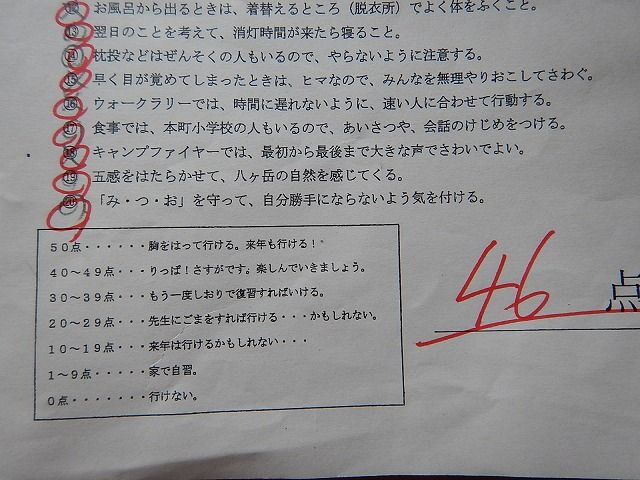 ⑫お風呂から出るときは、着替えるところ（脱衣所）でよく体をふくこと。
⑬翌日のことを考えて、消灯時間が来たら寝ること。
⑭枕投などはぜんそくの人もいるので、やらないように注意する。
⑮早く目が覚めてしまったときは、ヒマなので、みんなを無理やりおこしてさわぐ。
⑯ウォークラリーでは、時間に遅れないように、速い人に合わせて行動する。
⑰食事では、本町小学校の人もいるので、あいさつや、会話のけじめをつける。
⑱キャンプファイヤーでは、最初から最後まで大きな声でさわいでよい。
⑲五感をはたらかせて、八ヶ岳の自然を感じてくる。
⑳「み・つ・お」を守って、自分勝手にならないよう気を付ける。
50点・・・・・・胸をはって行ける。来年も行ける！
40～49点・・・りっぱ！さすがです。楽しんでいきましょう。
30～39点・・・もう一度しおりで復習すればいける。
20～29点・・・先生にごまをすれば行ける・・・かもしれない。
10～19点・・・来年は行けるかもしれない・・・
1～9点・・・・・家で自習。
0点・・・・・・・行けない。
46点